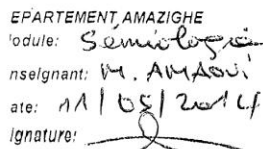 EPARTEMENT AMAZIGHE
odule: Sémiologie
nseignant: M. AMAOUI
ate: 11/05/2014
ignature: